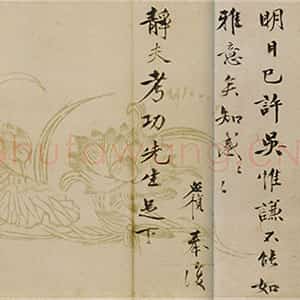 明日已許吳惟謙不能如
雅意矣知感〻〻
奉復
靜夫考功先生足下